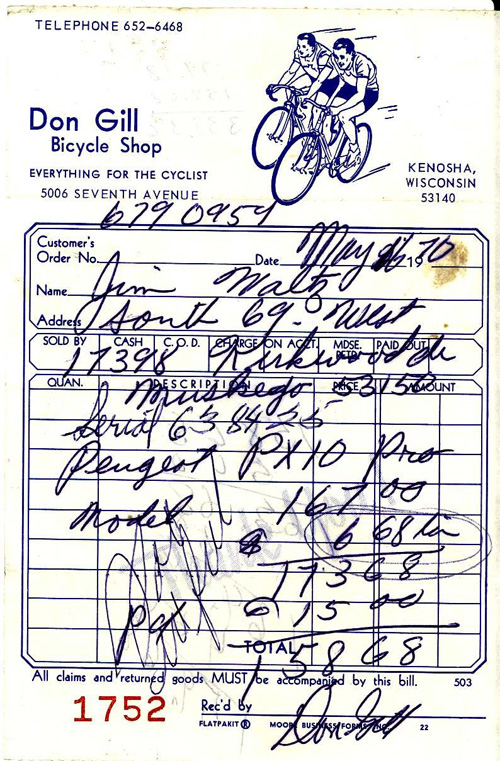 TELEPHONE 652-6468
Don Gill
Bicycle Shop
EVERYTHING FOR THE CYCLIST
5006 SEVENTH AVENUE
KENOSHA,
WISCONSIN
53140
679 0959
Customer's
Order No. Date May 26 1970
Name Jim Waltz
Address South 69 West
SOLD BY CASH C.O.D. CHARGE ON ACCT. MDSE. RETD. PAID OUT
17398 Kirkwood dr
QUAN. DESCRIPTION PRICE AMOUNT
Muskego 53150
Serial 6384255
Peugeot PX10 Pro
Model 167 00
6 68
173 68
15 00
TOTAL 158 68
All claims and returned goods MUST be accompanied by this bill. 503
1752
Rec'd by Don Gill
FLATPAKIT® MOORE BUSINESS FORMS, INC. 22